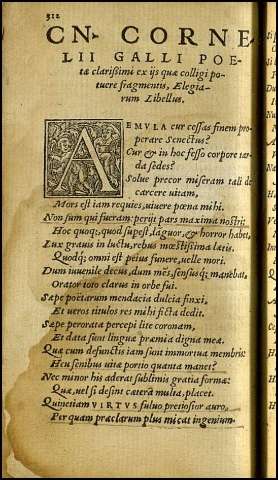 312
CN· CORNE
LII GALLI POE-
tæ clarissimi ex ijs quæ colligi po-
tuere fragmentis, Elegia-
rum Libellus.
AEMVLA cur cessas finem pro-
perare Senectus?
Cur & in hoc fesso corpore tar-
da sedes?
Solue precor miseram tali de
carcere uitam,
Mors est iam requies, uiuere pœna mihi.
Non sum qui fueram: perijt pars maxima nostri:
Hoc quoq; quod supest, lãguor, & horror habet,
Lux grauis in luctu, rebus mœstissima lætis.
Quodq; omni est peius funere, uelle mori.
Dum iuuenile decus, dum mẽs, sensusq; manebat,
Orator toto clarus in orbe fui.
Sæpe poëtarum mendacia dulcia finxi,
Et ueros titulos res mihi ficta dedit.
Sæpe perorata percepi lite coronam,
Et data sunt linguæ præmia digna meæ.
Quæ cum defunctis iam sunt immortua membris:
Heu senibus uitæ portio quanta manet?
Nec minor his aderat sublimis gratia formæ:
Quæ, uel si desint cætera, multa placet.
Quinetiam VIRTVS fuluo pretiosior auro,
Per quam præclarum plus micat ingenium.